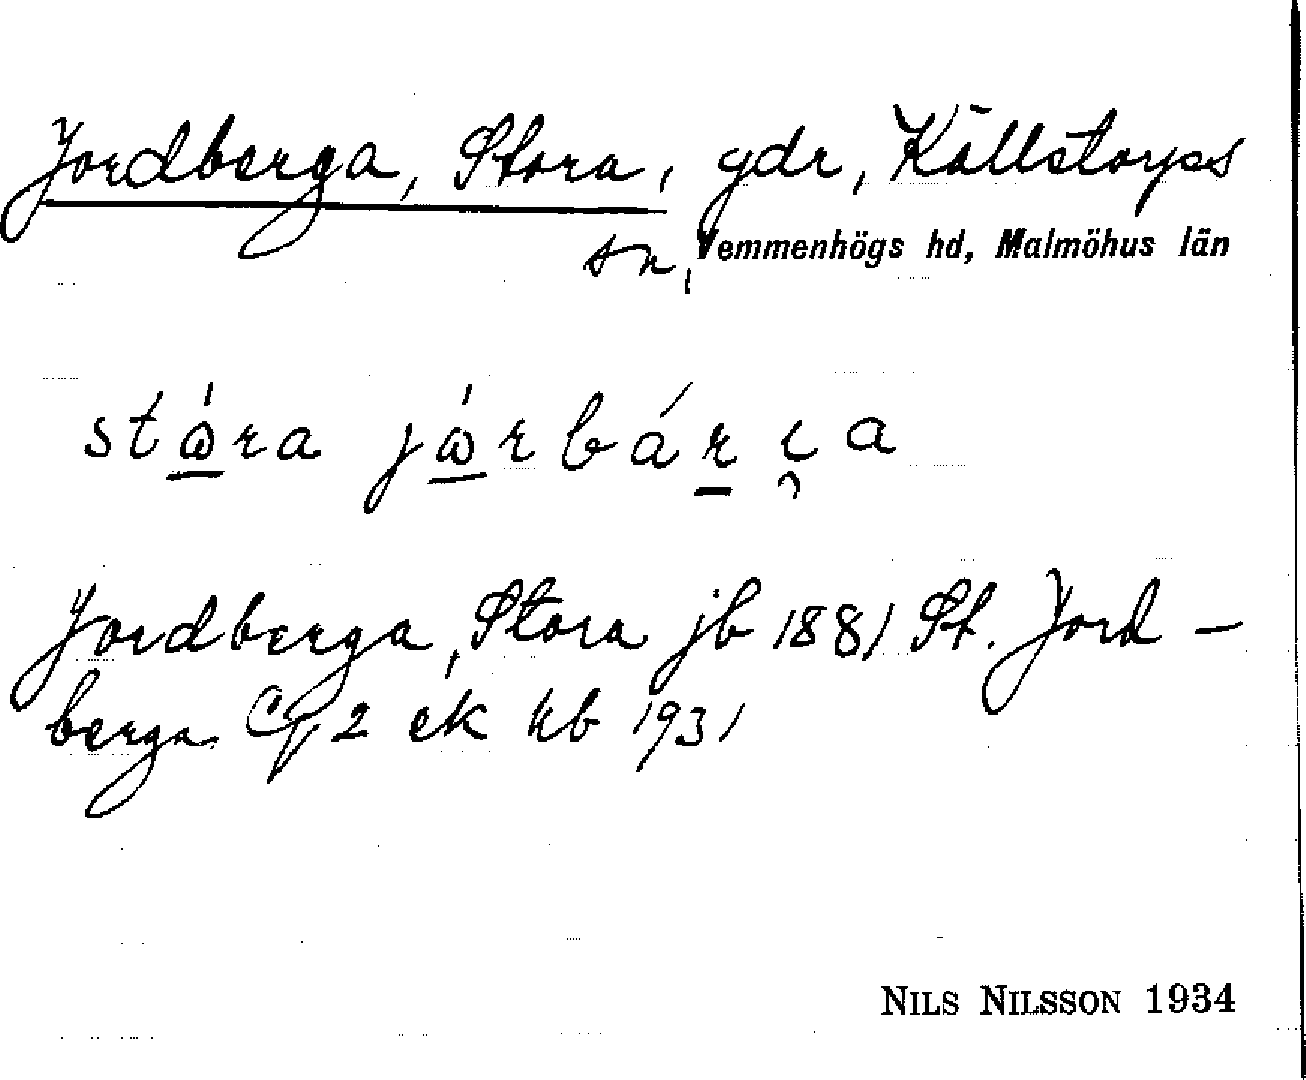 Jordberga, Stora, gdr, Källstorps
sn, Vemmenhögs hd, Malmöhus län
stɷ̲́ra jɷ̲́rbár̲ı̯a
Jordberga, Stora jb 1881 St. Jord-
berga Cg 2 ek kb 1931
NILS NILSSON 1934